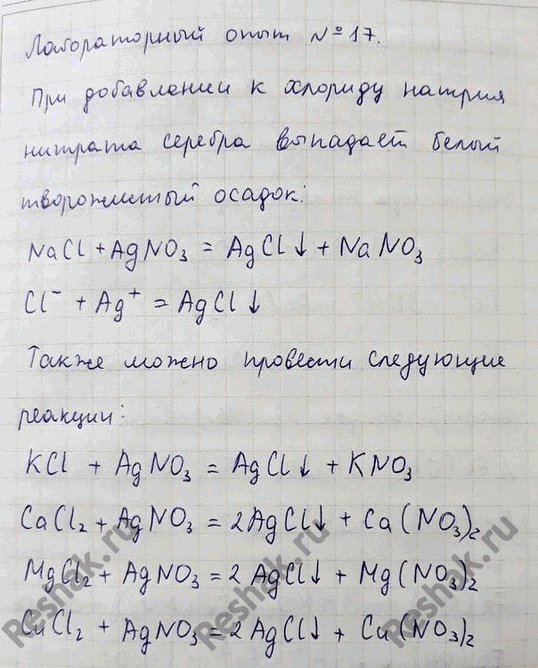 Лабораторный опыт №17.
При добавлении к хлориду натрия
нитрата серебра выпадает белый
творожистый осадок:
NaCl + AgNO₃ = AgCl↓ + NaNO₃
Cl⁻ + Ag⁺ = AgCl↓
Также можно провести следующие
реакции:
KCl + AgNO₃ = AgCl↓ + KNO₃
CaCl₂ + AgNO₃ = 2AgCl↓ + Ca(NO₃)₂
MgCl₂ + AgNO₃ = 2AgCl↓ + Mg(NO₃)₂
CuCl₂ + AgNO₃ = 2AgCl↓ + Cu(NO₃)₂
Reshak.ru
Reshak.ru
Reshak.ru